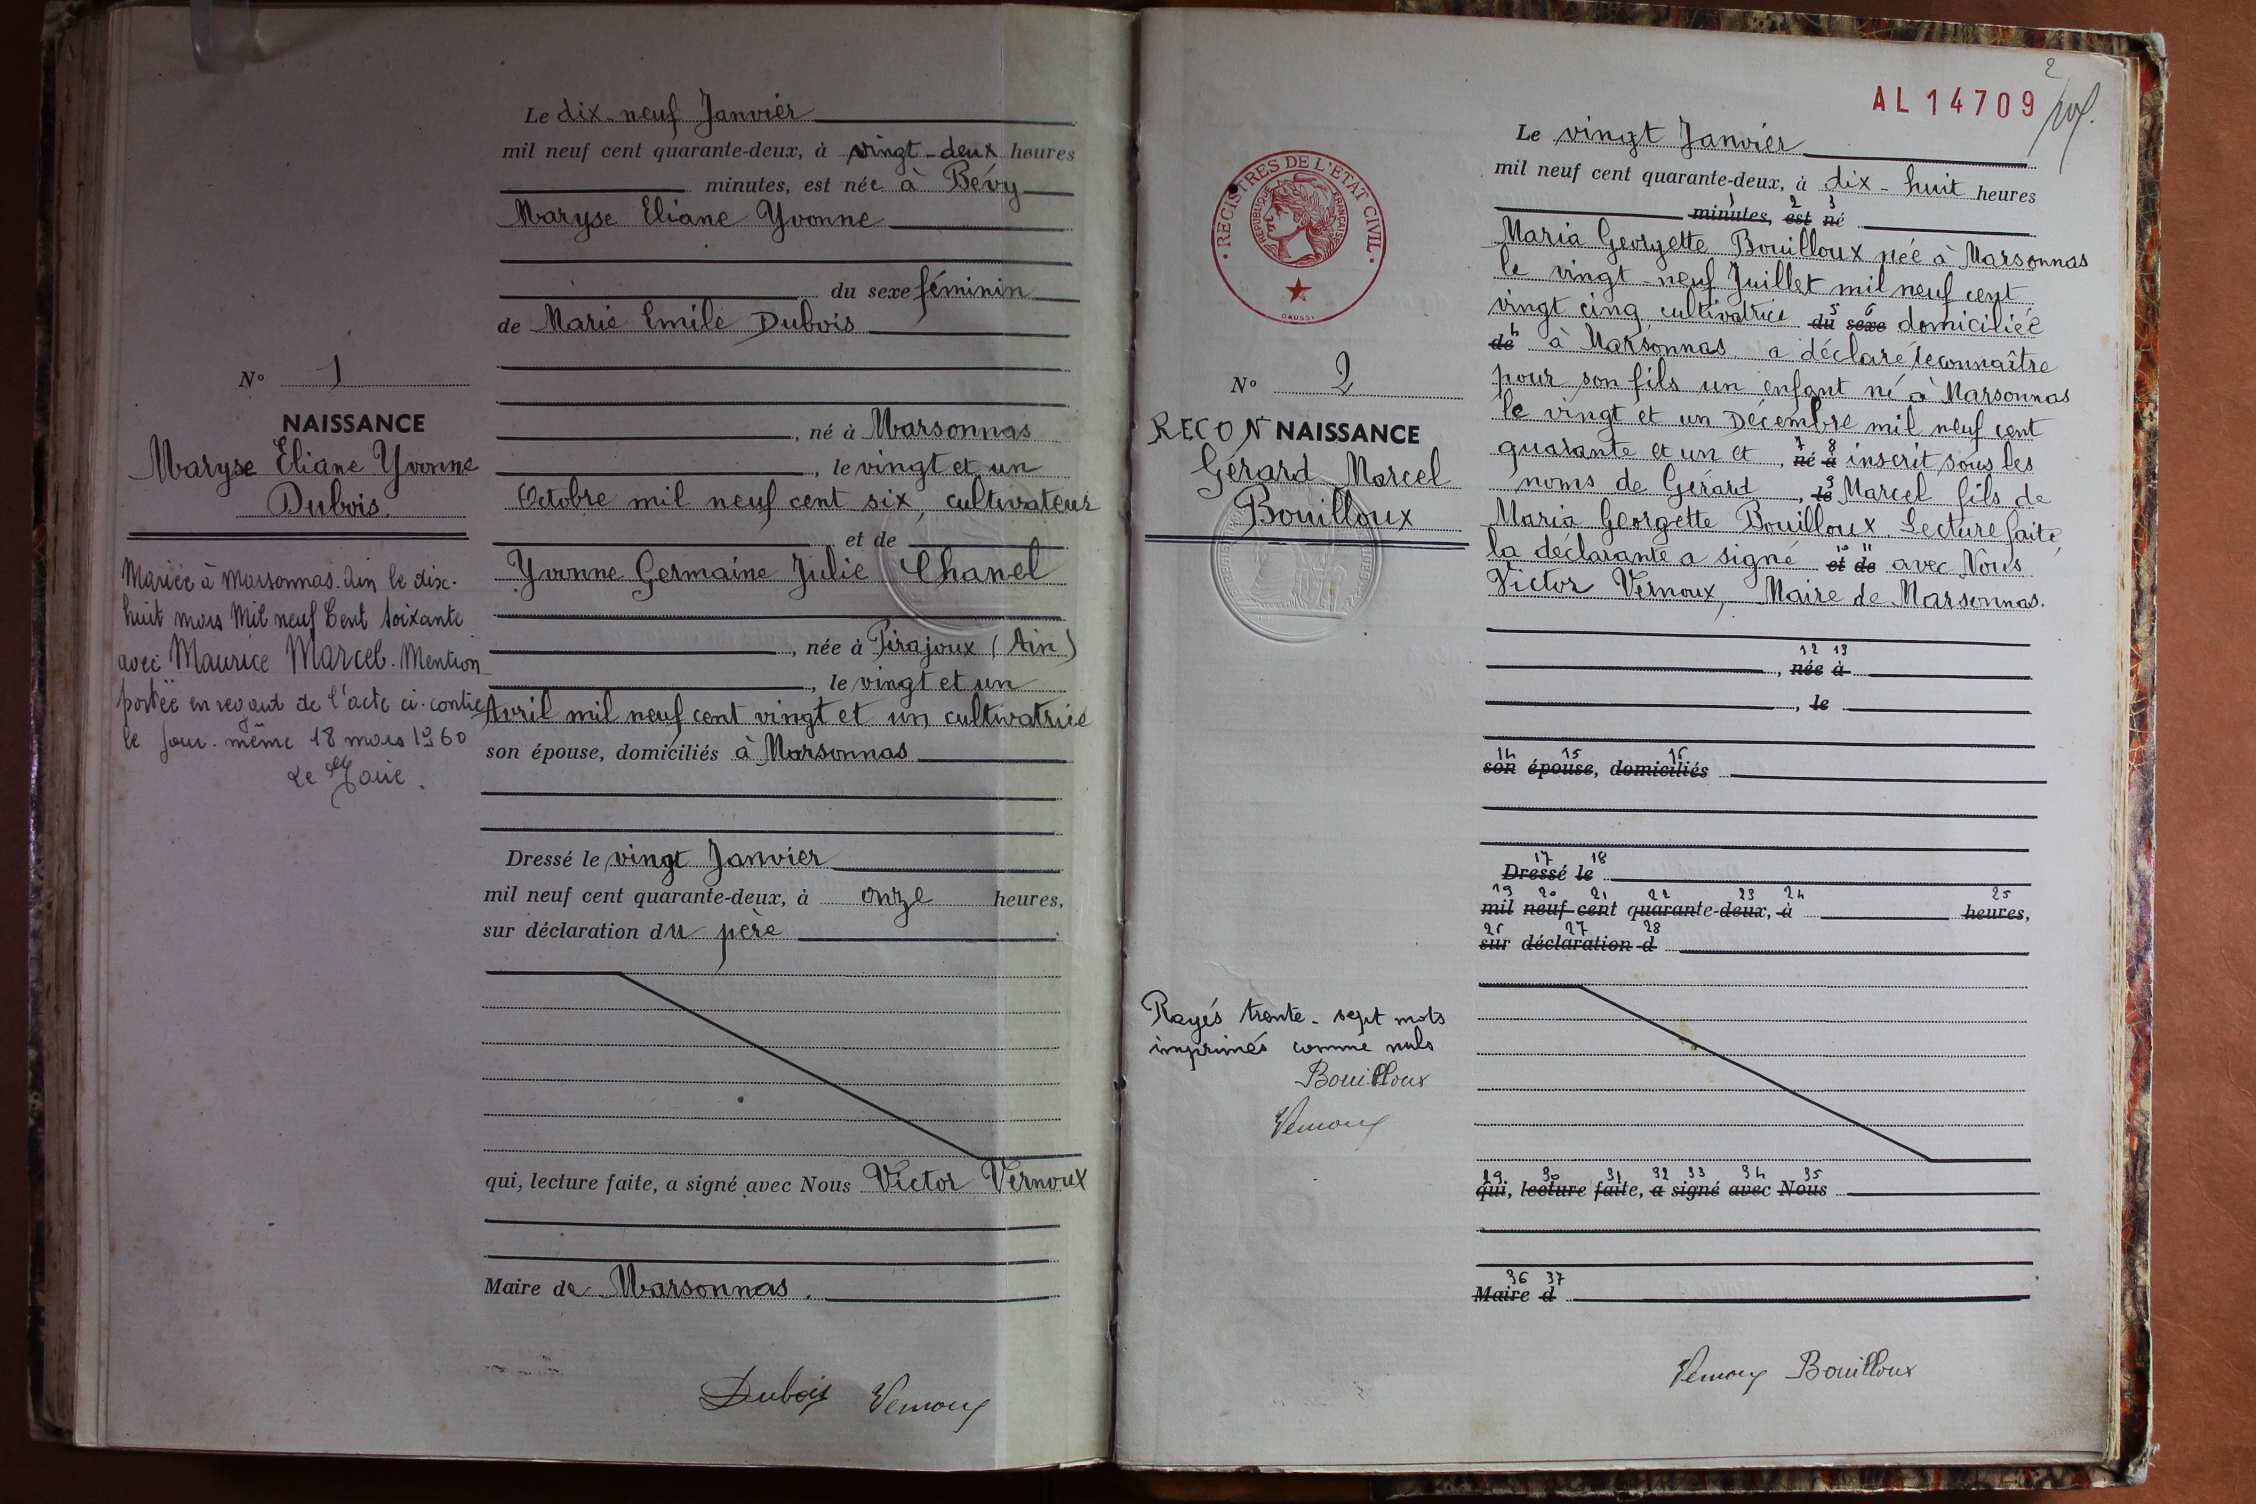 Le dix-neuf Janvier
mil neuf cent quarante-deux, à vingt-deux heures
minutes, est née à Bévy
Maryse Eliane Yvonne
du sexe féminin
de Marie Emile Dubois
N° 1
NAISSANCE
Maryse Eliane Yvonne
Dubois.
, né à Marsonnas
, le vingt et un
Octobre mil neuf cent six, cultivateur
et de
Yvonne Germaine Julie Chanel
, née à Pirajoux (Ain)
, le vingt et un
Avril mil neuf cent vingt et un, cultivatrice
son épouse, domiciliés à Marsonnas
Mariée à Marsonnas. Ain le dix-
huit mars Mil neuf Cent Soixante
avec Maurice Marcel. Mention
portée en regard de l'acte ci-contre
le jour-même 18 mars 1960
Le Maire.
Dressé le vingt Janvier
mil neuf cent quarante-deux, à onze heures,
sur déclaration du père
qui, lecture faite, a signé avec Nous Victor Vernoux
Maire de Marsonnas.
Dubois Vernoux
2
AL 14709
REGISTRES DE L'ETAT CIVIL
REPUBLIQUE FRANÇAISE
DAUSSY
N° 2
RECONNAISSANCE
Gérard Marcel
Bouilloux
Le vingt Janvier
mil neuf cent quarante-deux, à dix-huit heures
1 2 3
minutes, est né
Maria Georgette Bouilloux née à Marsonnas
le vingt-neuf Juillet mil neuf cent
5 6
vingt cinq cultivatrice du sexe domiciliée
4
de à Marsonnas a déclaré reconnaître
pour son fils un enfant né à Marsonnas
le vingt et un Décembre mil neuf cent
7 8
quarante et un et, né à inscrit sous les
9
noms de Gérard, le Marcel fils de
Maria Georgette Bouilloux. Lecture faite,
10 11
la déclarante a signé et de avec Nous
Victor Vernoux, Maire de Marsonnas.
12 13
, née à
, le
14 15 16
son épouse, domiciliés
17 18
Dressé le
19 20 21 22 23 24 25
mil neuf cent quarante-deux, à heures,
26 27 28
sur déclaration d
Rayés trente-sept mots
imprimés comme nuls
Bouilloux
Vernoux
29 30 31 32 33 34 35
qui, lecture faite, a signé avec Nous
36 37
Maire d
Vernoux Bouilloux